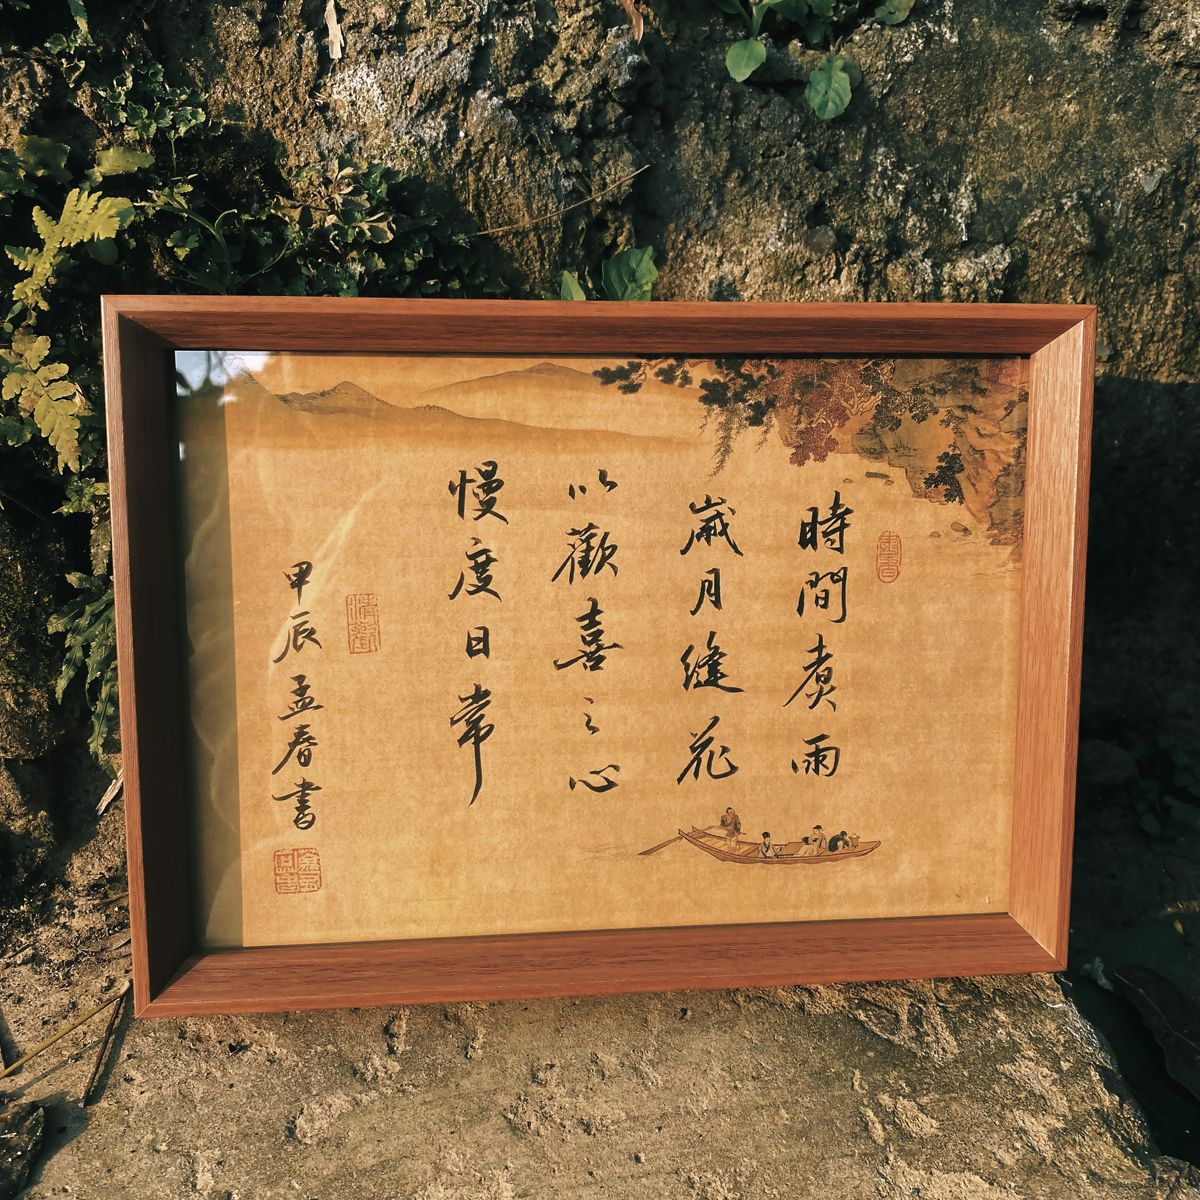 時間煮雨
歲月縫花
以歡喜之心
慢度日常
甲辰孟春書
書香